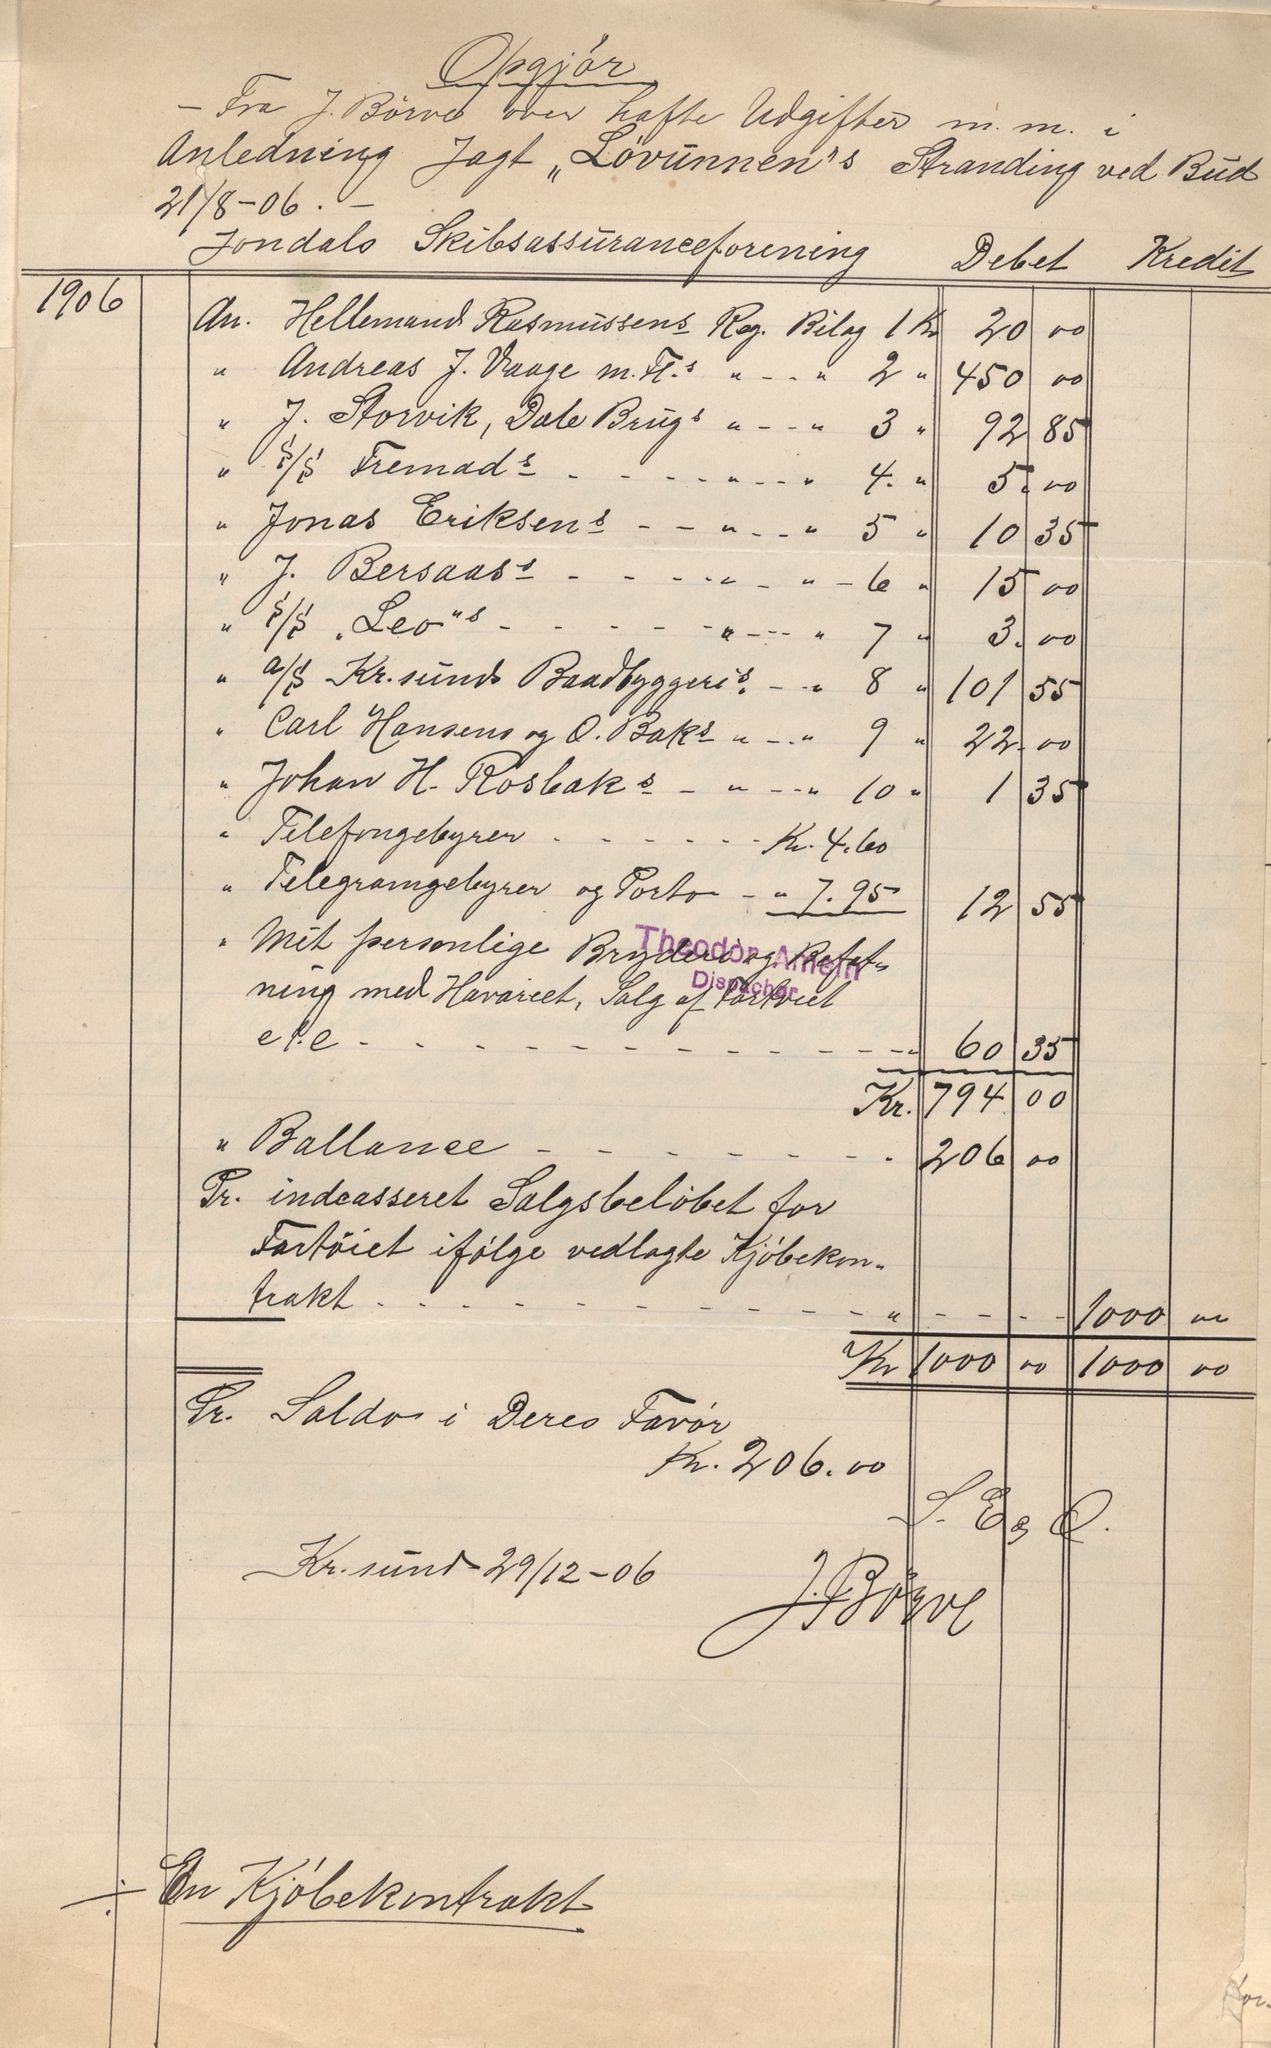 Opgjör
- Fra J. Börve over hafte Udgifter m. m. i
Anledning Jagt „Lövunnen"s Stranding ved Bud
21/8-06. -
Jondals Skibsassuranceforening Debet Kredit
1906
An. Hellemand Rasmussens Reg. Bilag 1 Kr 20 00
" Andreas J. Vaage m. Fl.s " - - - " 2 " 450 00
" J. Storvik, Dale Brugs " - - - " 3 " 92 85
" S/S Fremads - - - - " - - - " 4. " 5. 00
" Jonas Eriksens - - " - - - " 5 " 10 35
" J. Bersaass - - - - " - " - 6 " 15 00
" S/S „Leo"s - - - - - " - - - " 7 " 3. 00
" A/S Kr.sunds Baadbyggeris. - - " 8 " 101 55
" Carl Hansens og O. Baks " - - - " 9 " 22. 00
" Johan H. Rosbaks - " - - - " 10 " 1 35
" Telefongebyrer - - - - - - Kr. 4.60
" Telegramgebyrer og Porto - " 7.95 12 55
" Mit personlige Bryderi og Befat-
Theodor Ameln
Dispachør
ning med Havariet, Salg af Fartöiet
etc - - - - - - - - - - - - " 60 35
Kr. 794 00
" Ballance - - - - - - - - 206 00
Pr. indcasseret Salgsbelöbet for
Fartöiet ifölge vedlagte Kjöbekon-
trakt - - - - - - - - - - - " - - - - 1000 00
Kr 1000 00 1000 00
Pr. Saldo i Deres Favör
Kr. 206.00
S. E & O.
Kr.sund 29/12-06
J. Börve
÷ En Kjöbekontrakt